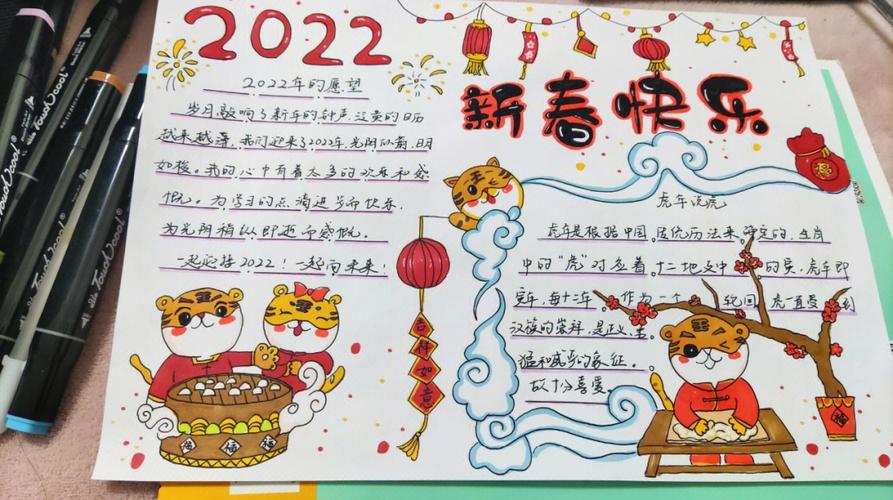 2022
新春快乐
2022年的愿望
岁月敲响了新年的钟声,泛黄的日历
越来越薄,我们迎来了2022年,光阴似箭,日月
如梭。我的心中有着太多的欢乐和感
慨。为学习的点滴进步而快乐,
为光阴稍纵即逝而感慨。
一起迎接2022!一起向未来!
虎年说虎
虎年是根据中国 历法来 定的,生肖
中的"虎"对应着 十二地支中 的寅,虎年即
寅年,每十二年 作为一个 轮回 虎一直受 到
汉族的崇拜,是正义、
猛和威严的象征。
故十分喜爱。
吉祥如意
福
福
福
TouchCool
TouchCool
TouchCool